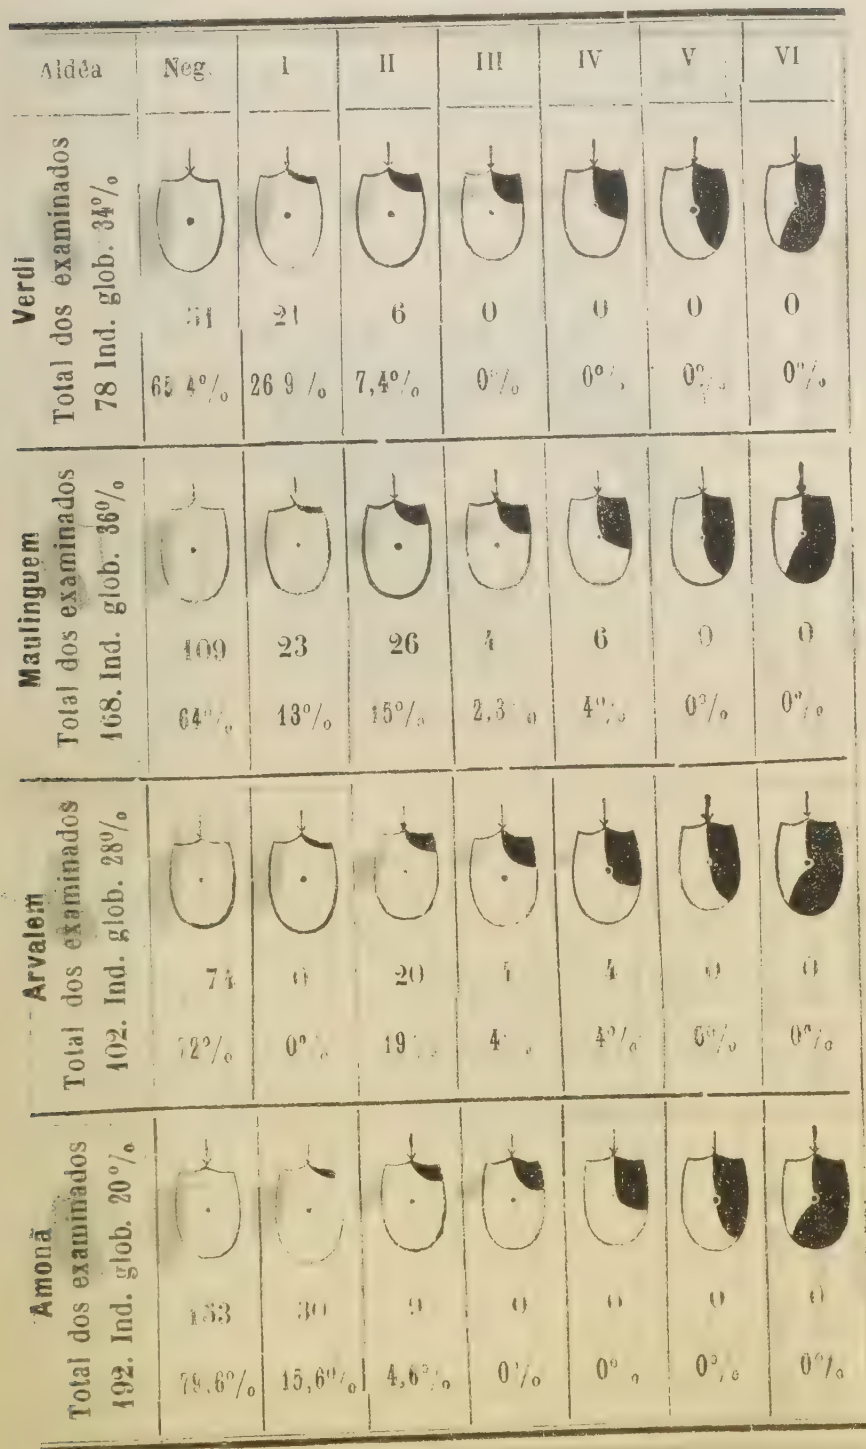 Aldêa Neg. I II III IV V VI
Verdi
Total dos examinados
78 Ind. glob. 34%
51 21 6 0 0 0 0
65 4% 26 9 % 7,4% 0% 0% 0% 0%
Maulinguem
Total dos examinados
168. Ind. glob. 36%
109 23 26 4 6 0 0
64% 13% 15% 2,3 4% 0% 0%
Arvalem
Total dos examinados
102. Ind. glob. 28%
74 0 20 4 4 0 0
72% 0% 19 4 4% 0% 0%
Amonã
Total dos examinados
192. Ind. glob. 20%
153 30 9 0 0 0 0
79,6% 15,6% 4,6% 0% 0% 0% 0%